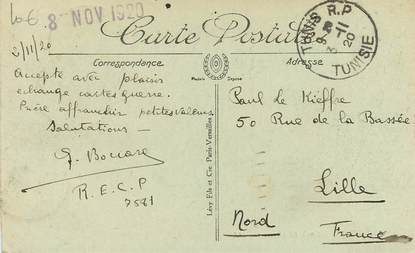 8 NOV 1920
Carte Postale
TUNIS R.P.
TUNISIE
2/11/20
Correspondance
Adresse
Modèle Déposé
Accepte avec plaisir
échange cartes guerre.
Prière affranchir petites valeurs
Salutations —
R.E.C.P
7581
Lévy Fils et Cie Paris-Versailles
Paul de Kieffre
50 Rue de la Bassée
Lille
Nord
France